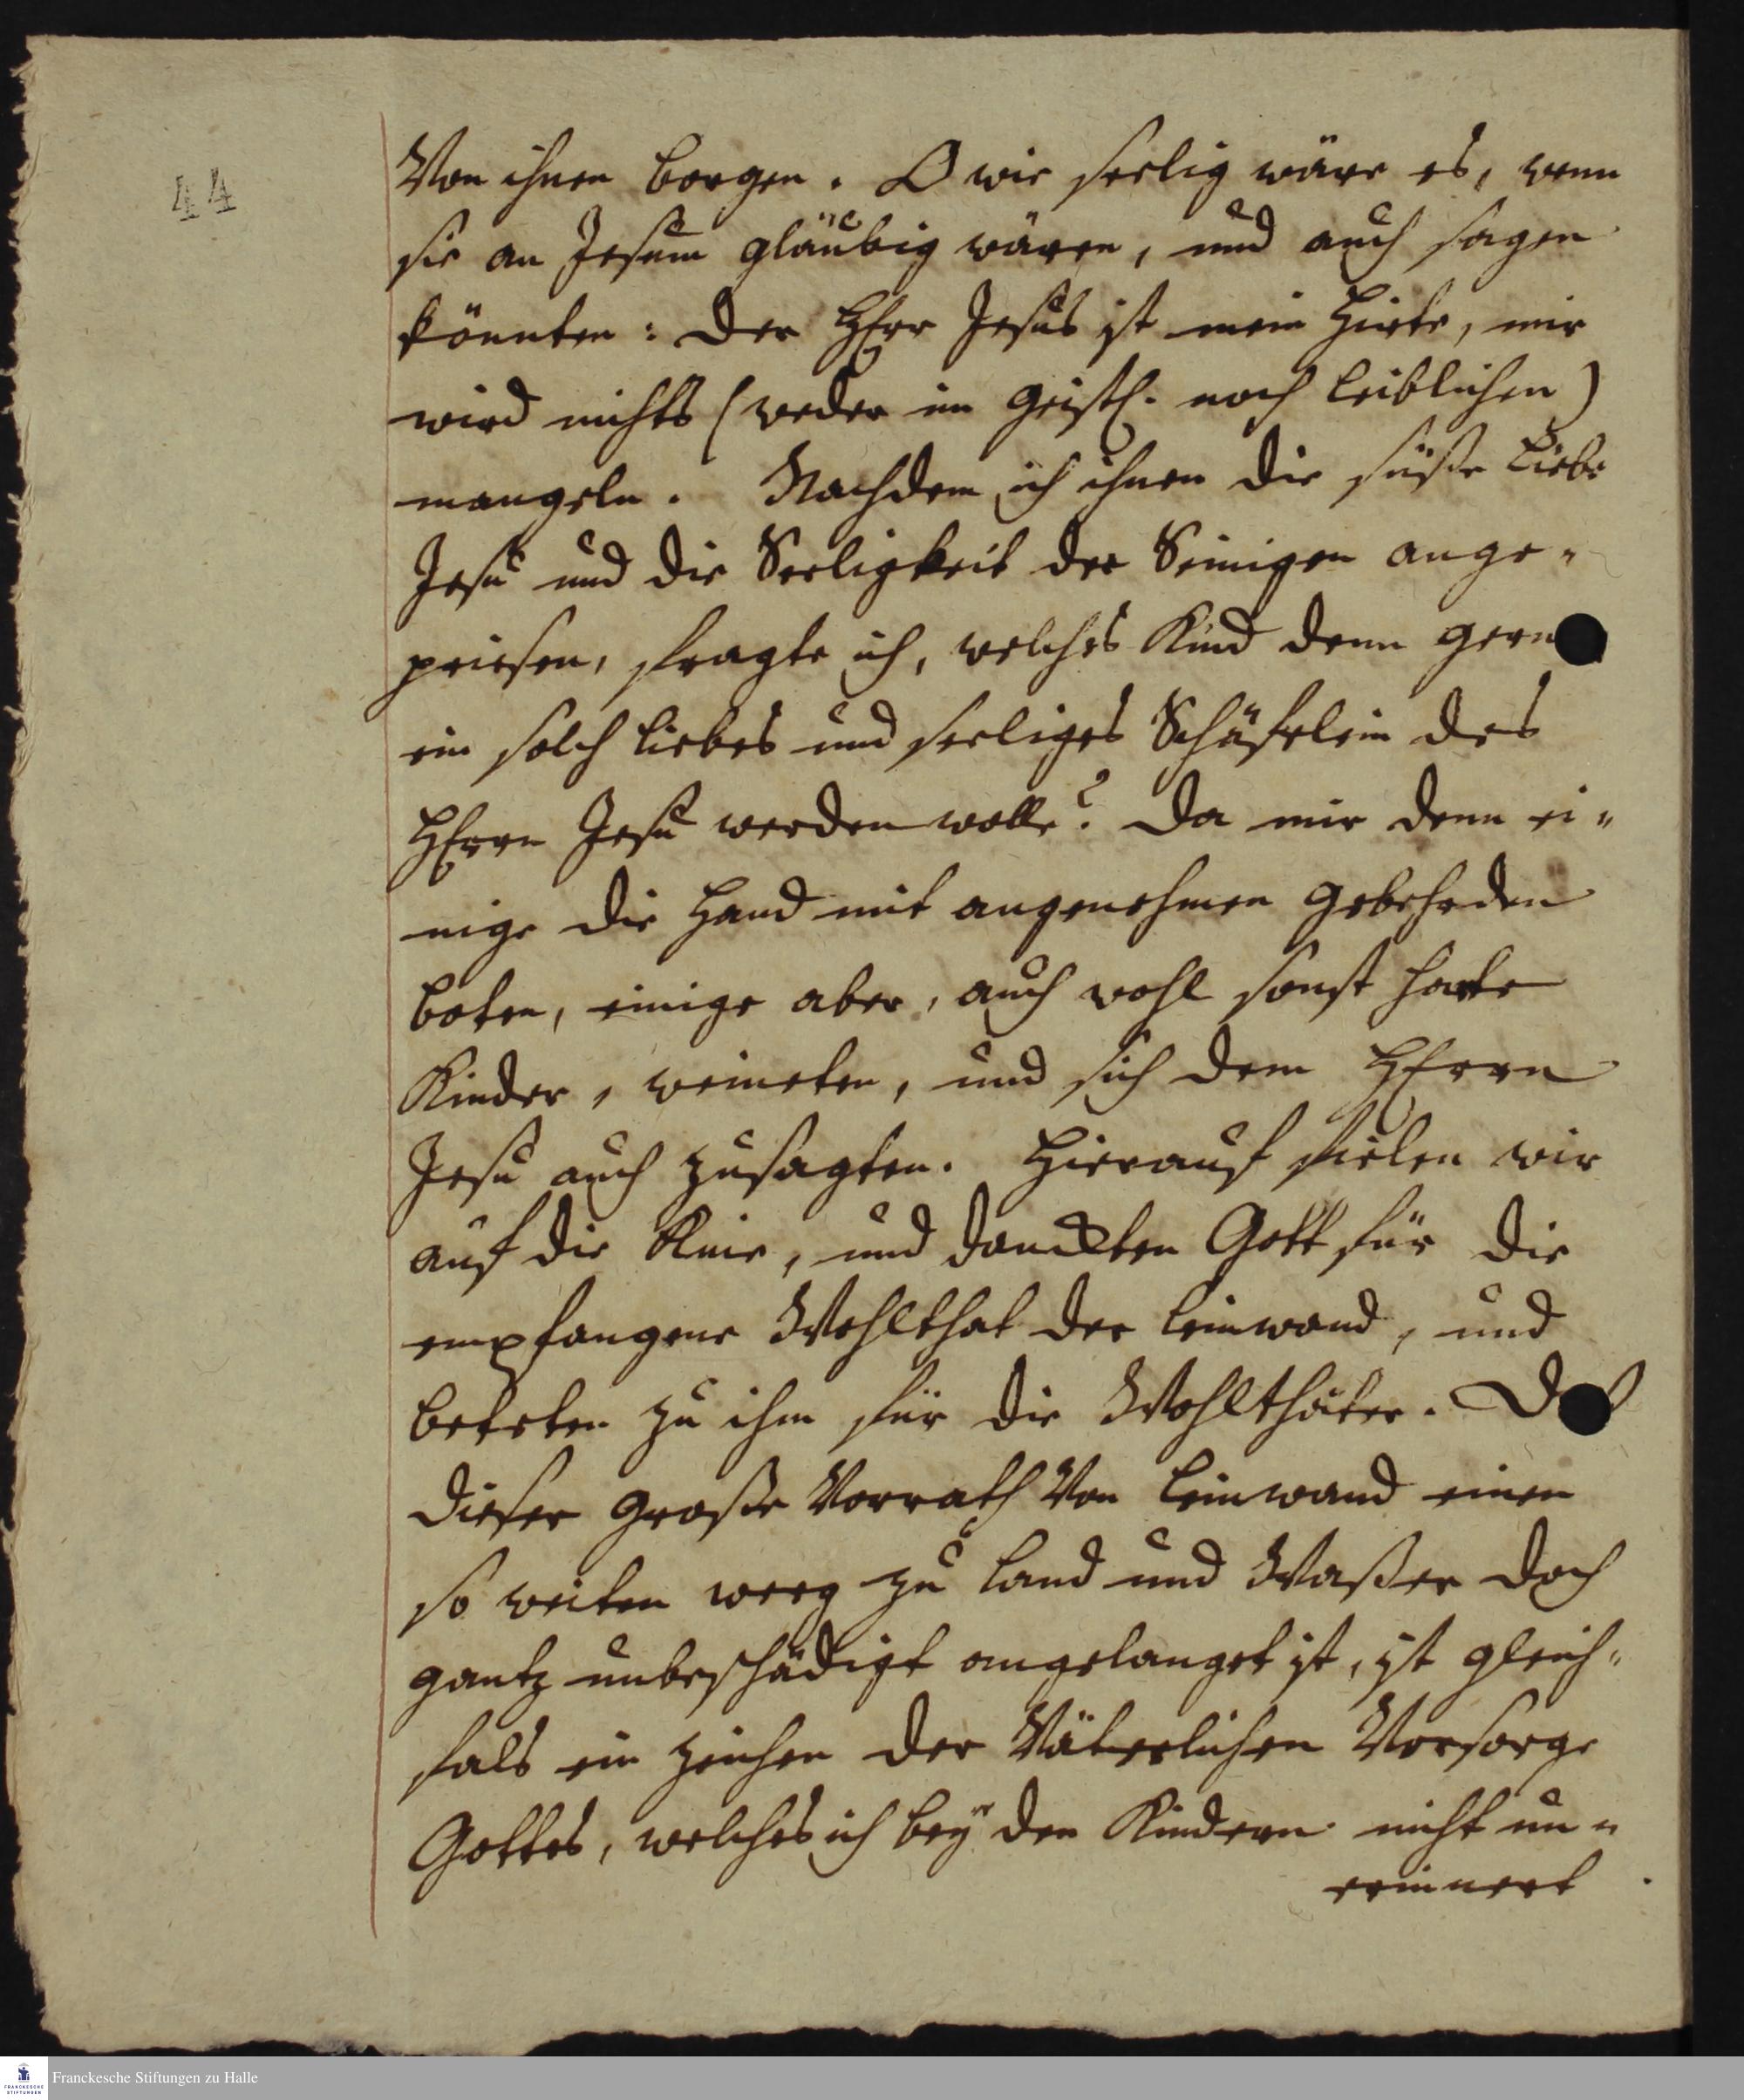 44
Von ihnen borgen. O wie seelig wäre es, wenn
sie an Jesum gläubig wären, und auch sagen
könnten: der HErr Jesus ist mein Hirte, mir
wird nichts (weder im geistl. noch leiblichen)
mangeln. Nachdem ich ihnen die süße Liebe
Jesu und die Seeligkeit der Seinigen ange-
priesen, fragte ich, welches Kind denn gern
ein solch liebes und seeliges Schäfelein des
HErrn Jesu werden wolle? Da mir denn ei-
nige die Hand mit angenehmen Gebehrden
boten, einige aber, auch wohl sonst harte
Kinder, weineten, und sich dem HErrn
Jesu auch zusagten. Hierauf fielen wir
auf die Knie, und danckten Gott für die
empfangene Wohlthat der Leinwand, und
beteten zu ihm für die Wohlthäter.
dieser große Vorrath Von Leinwand einen
so weiten weeg zu Land und Waßer doch
gantz unbeschädigt angelanget ist, ist gleich-
fals ein zeichen der Väterlichen Vorsorge
Gottes, welches ich bey den Kindern nicht un-
erinnert
Franckesche Stiftungen zu Halle